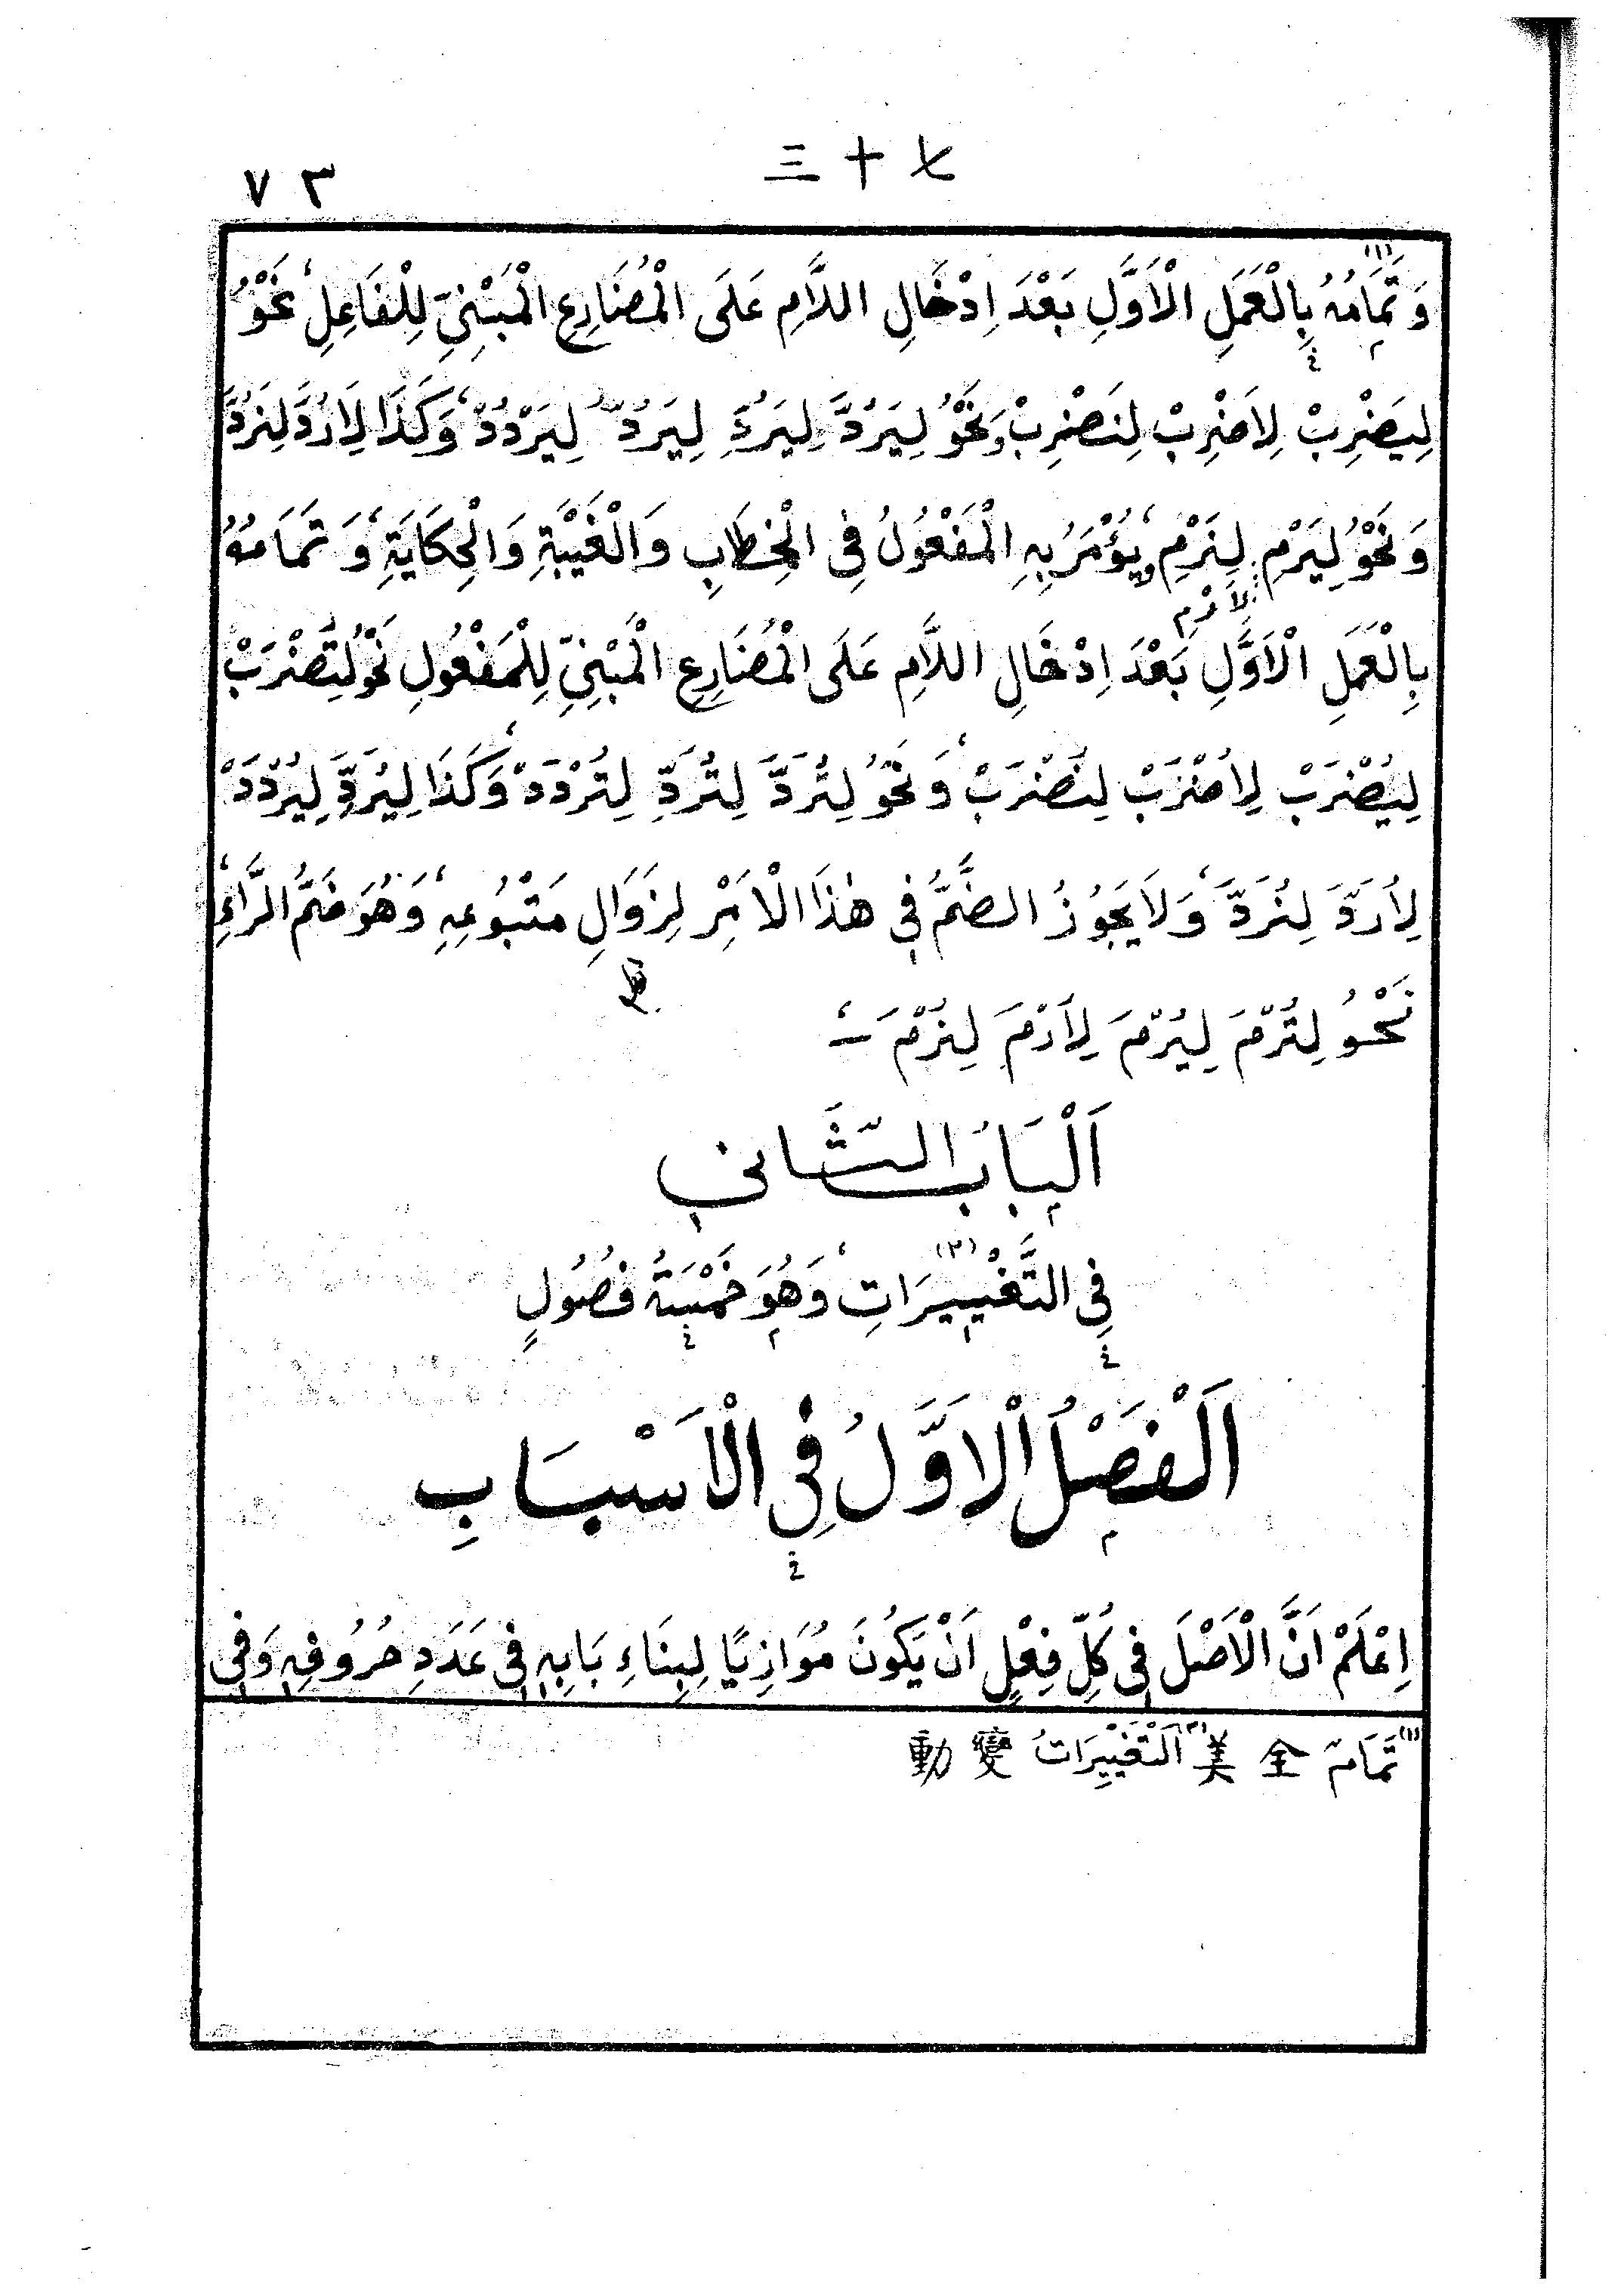 三十七
٧٣
وَتَمَامُهُ (١) بِالْعَمَلِ الْاَوَّلِ بَعْدَ اِدْخَالِ اللَّامِ عَلَى الْمُضَارِعِ الْمَبْنِيِّ لِلْفَاعِلِ، نَحْوُ
لِيَضْرِبْ لِاَضْرِبْ لِنَضْرِبْ، وَنَحْوُ لِيَرُدَّ لِيَرُدِّ لِيَرُدُّ لِيَرْدُدْ، وَكَذَا لِاَرُدَّ لِنَرُدَّ
وَنَحْوُ لِيَرْمِ لِنَرْمِ، وَيُؤْمَرُ بِهِ الْمَفْعُولُ فِي الْخِطَابِ وَالْغَيْبَةِ وَالْحِكَايَةِ، وَتَمَامُهُ
لِاَرْمِ
بِالْعَمَلِ الْاَوَّلِ بَعْدَ اِدْخَالِ اللَّامِ عَلَى الْمُضَارِعِ الْمَبْنِيِّ لِلْمَفْعُولِ نَحْوُ لِتُضْرَبْ
لِيُضْرَبْ لِاُضْرَبْ لِنُضْرَبْ، وَنَحْوُ لِتُرَدَّ لِتُرَدِّ لِتُرْدَدْ، وَكَذَا لِيُرَدَّ لِيُرْدَدْ
لِاُرَدَّ لِنُرَدَّ، وَلَا يَجُوزُ الضَّمُّ فِي هٰذَا الْاَمْرِ لِزَوَالِ مَتْبُوعِهِ، وَهُوَ ضَمُّ الرَّاءِ،
نَحْوُ لِتُرْمَ لِيُرْمَ لِاُرْمَ لِنُرْمَ ـ،
اَلْبَابُ الثَّانِي
فِي التَّغْيِيرَاتِ (٢)، وَهُوَ خَمْسَةُ فُصُولٍ
اَلْفَصْلُ الْاَوَّلُ فِي الْاَسْبَابِ
اِعْلَمْ اَنَّ الْاَصْلَ فِي كُلِّ فِعْلٍ اَنْ يَكُونَ مُوَازِيًا لِبِنَاءِ بَابِهِ فِي عَدَدِ حُرُوفِهِ وَفِي
(١) تَمَام 全美 (٢) اَلتَّغْيِيرَاتُ 變動